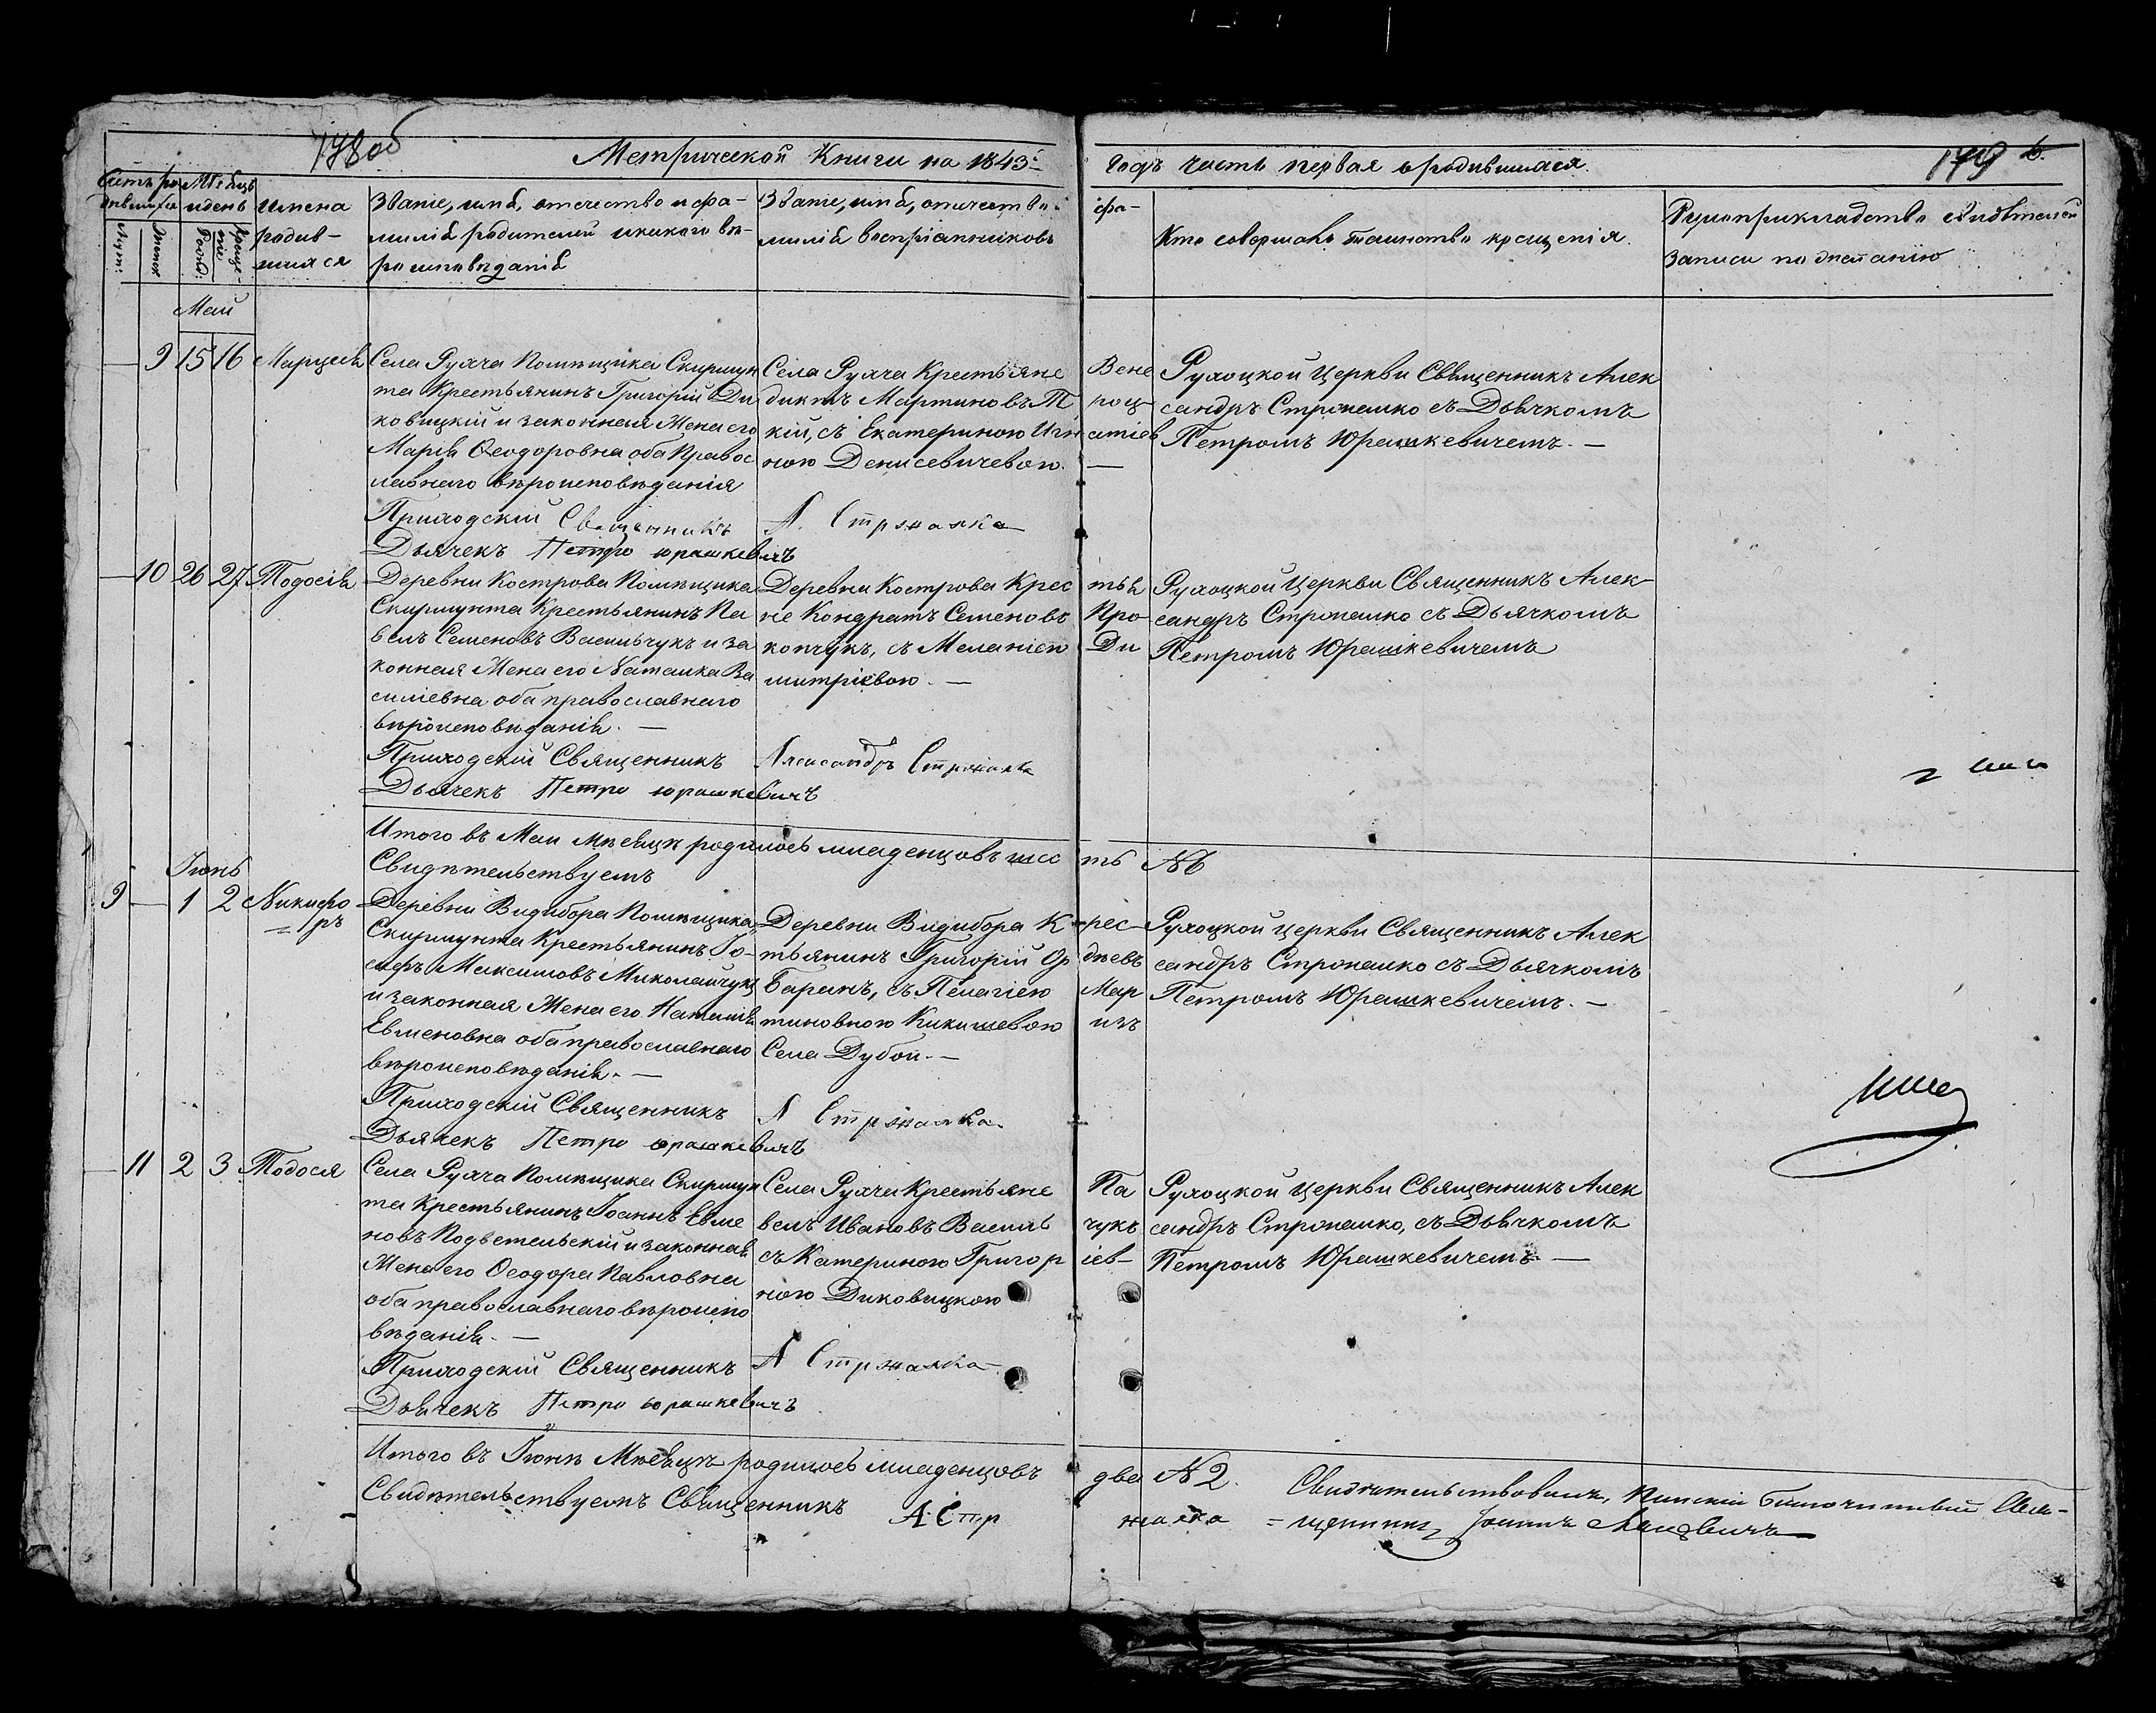 178об
Метрической Книги на 1843й
годъ часть первая о родившихся.
179
Счетъ ро
дившихся
Мѣсяцъ
и день
Имена
родив-
шихся
Званіе, имя, отчество и фа-
милія родителей и какого вѣ-
роисповѣданія
Званіе, имя, отчество и фа-
милія воспріемниковъ
Кто совершалъ таинство крещенія.
Рукоприкладство свидѣтелей
записи по желанію
Май
9 15 16
Села Рухча Помѣщика Скирмун
та Крестьянинъ Григорій Ди
ковицкій и законная Жена его
Марія Ѳеодоровна оба Правос
лавнаго вѣроисповѣданія
Приходскій Священникъ А. Стржалка
Дьячекъ Петро Юрашкевичъ
Села Рухча Крестьяне Вене
диктъ Мартиновъ Троц
кій, съ Екатериною Игнатіев
ною Денисевичевою. —
Рухоцкой Церкви Священникъ Алек
сандръ Стржалко съ Дьячкомъ
Петромъ Юрашкевичемъ. —
10 26 27 Тодосія
Деревни Кострова Помѣщика
Скирмунта Крестьянинъ Па
велъ Семеновъ Васильчукъ и за
конная Жена его Наталка Ва
силіевна оба православнаго
вѣроисповѣданія. —
Приходскій Священникъ Александръ Стржалка
Дьячекъ Петро Юрашкевичъ
Деревни Кострова Крестья
не Кондратъ Семеновъ Про
копчукъ, съ Меланіею Ди
митріевою. —
Рухоцкой Церкви Священникъ Алек-
сандръ Стржалко съ Дьячкомъ
Петромъ Юрашкевичемъ
Итого въ Маи Мѣсяцѣ родилось младенцовъ шесть №6
Свидѣтельствуемъ
Іюнь
9 — 1 2 Никифо
ръ
Деревни Видибора Помѣщика
Скирмунта Крестьянинъ Іо-
сифъ Максимовъ Миколайчукъ
и законная Жена его Наталія
Евменовна оба православнаго
вѣроисповѣданія. —
Приходскій Священникъ А Стржалка
Дьячекъ Петро Юрашкевичъ
Деревни Видибора Крес-
тьянинъ Григорій Ѳр
Баранъ, съ Пелагіею Мар
тиновною Кикишевою изъ
Села Дубои. —
Рухоцкой Церкви Священникъ Алек
сандръ Стржалко съ Дьячкомъ
Петромъ Юрашкевичемъ. —
11 2 3 Тодося
Села Рухча Помѣщика Скирмун
та Крестьянинъ Іоаннъ Евме
новъ Подветельскій и законная
Жена его Ѳеодора Павловна
оба православнаго вѣроиспо
вѣданія. —
Приходскій Священникъ А Стржалка
Дьячекъ Петро Юрашкевичъ
Села Рухча Крестьяне Па
велъ Ивановъ Василь чукъ
съ Катериною Григоріев-
ною Диковицкою
Рухоцкой Церкви Священникъ Алек
сандръ Стржалко, съ Дьячкомъ
Петромъ Юрашкевичемъ. —
Итого въ Іюнѣ Мѣсяцѣ родилось младенцовъ два №2.
Свидѣтельствуемъ Священникъ А. Стржалка
Свидѣтельствовалъ, Пинскій Благочинный Свя-
щенникъ Іоаннъ